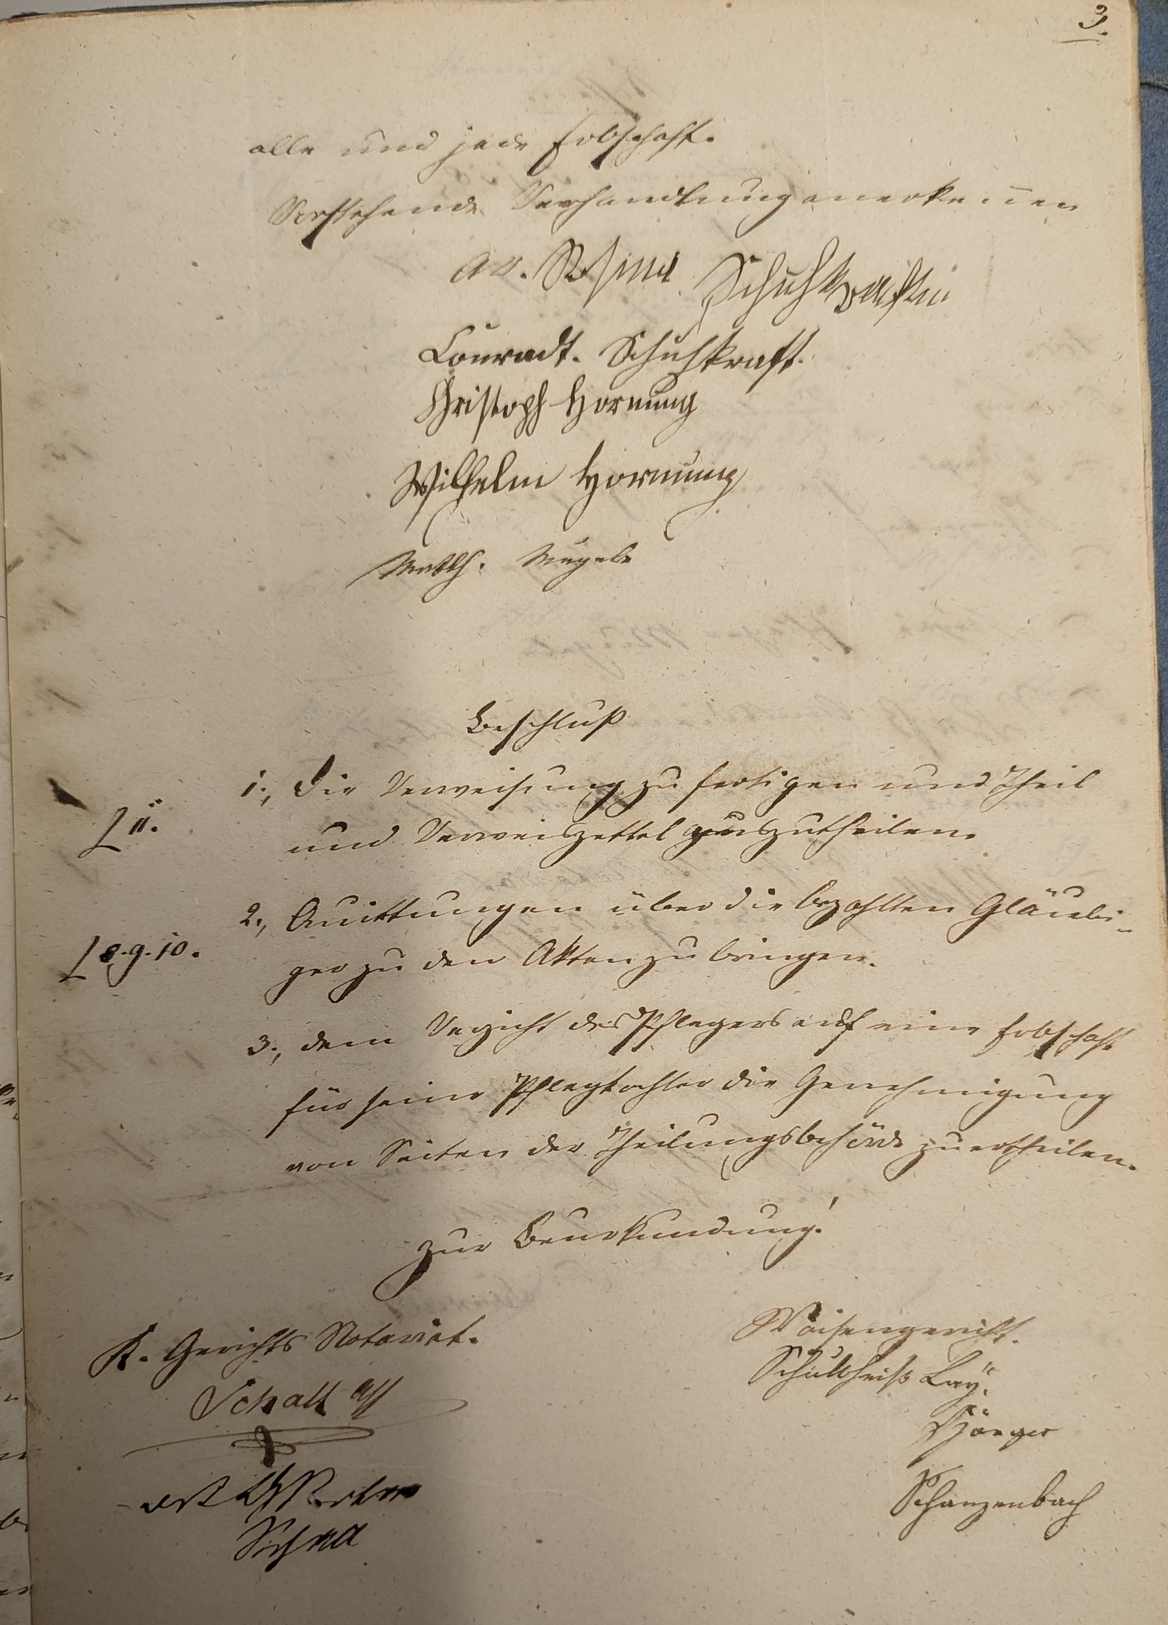 3.
alle und jede Erbschaft.
Vorstehende Verhandlung anerkennen
Rosina Schuhkraftin
Conradt. Schuhkraft.
Christoph Hornung
Wilhelm Hornung
Matth. Mugele
Beschluß
1., die Verweisung zu fertigen und Theil
und Verweiszettel auszutheilen.
11.
2., Quittungen über die bezahlten Gläubi-
ger zu den Akten zu bringen.
8.9.10.
3., dem Verzicht des Pflegers auf eine Erbschaft
für seine Pflegtochter die Genehmigung
von Seiten der Theilungsbehörde zu ertheilen.
Zur Beurkundung!
K. Gerichts Notariat.
Schall
Waisengericht.
Schultheiß Lay.
Schanzenbach